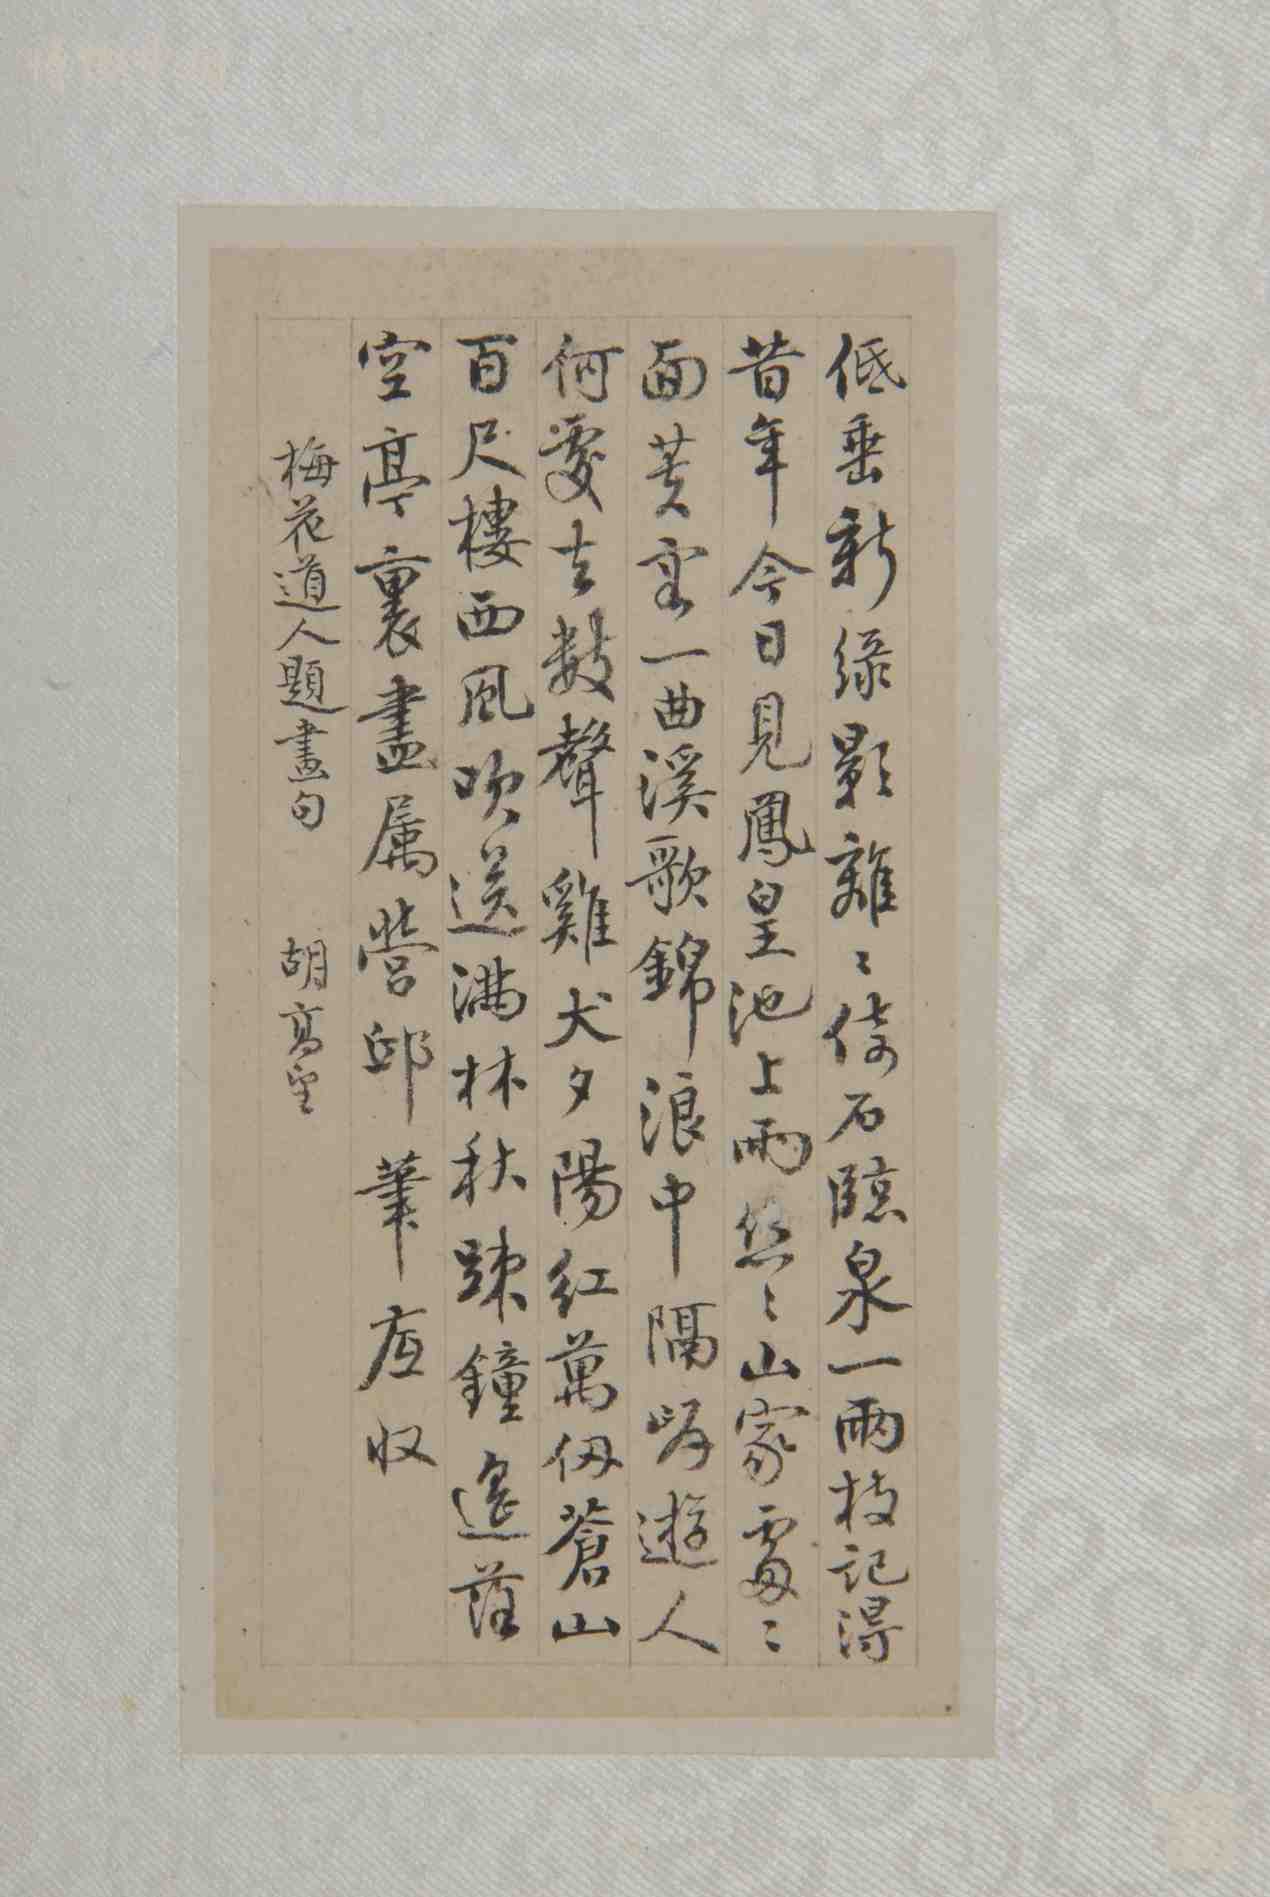 低垂新綠影離〻倚石臨泉一兩枝記得
昔年今日見鳳皇池上雨絲〻山家處〻
面芙蓉一曲溪歌錦浪中隔岸遊人
何處去數聲雞犬夕陽紅萬仞蒼山
百尺樓西風吹送滿林秋疎鐘遙落
空亭裏盡属營邱筆底收
梅花道人題畫句 胡高望